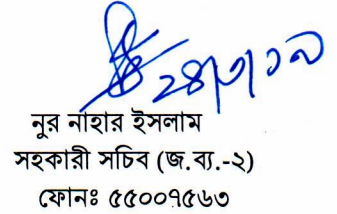 ২৪/৩/১৯
নুর নাহার ইসলাম
সহকারী সচিব (জ.ব্য.-২)
ফোনঃ ৫৫০০৭৫৬৩